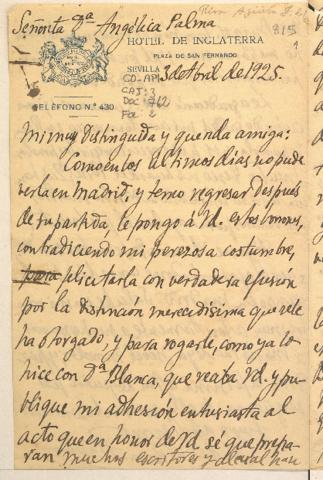 Señorita Dª Angélica Palma
815
HOTEL DE INGLATERRA
PLAZA DE SAN FERNANDO
SEVILLA 3 de Abril de 1925.
CO-AP
CAJ: 3
DOC 762
Fol 2
TELÉFONO N.º 430
Mi muy distinguida y querida amiga:
Como en los últimos días no pude
verla en Madrid, y temo regresar después
de su partida, le pongo á Vd. estos borrones,
contradiciendo mi perezosa costumbre,
para felicitarla con verdadera efusión
por la distinción merecidísima que se le
ha otorgado, y para rogarle, como ya lo
hice con Dª Blanca, que reciba Vd. y pu-
blique mi adhesión entusiasta al
acto que en honor de Vd. sé que prepa-
ran muchos escritores y